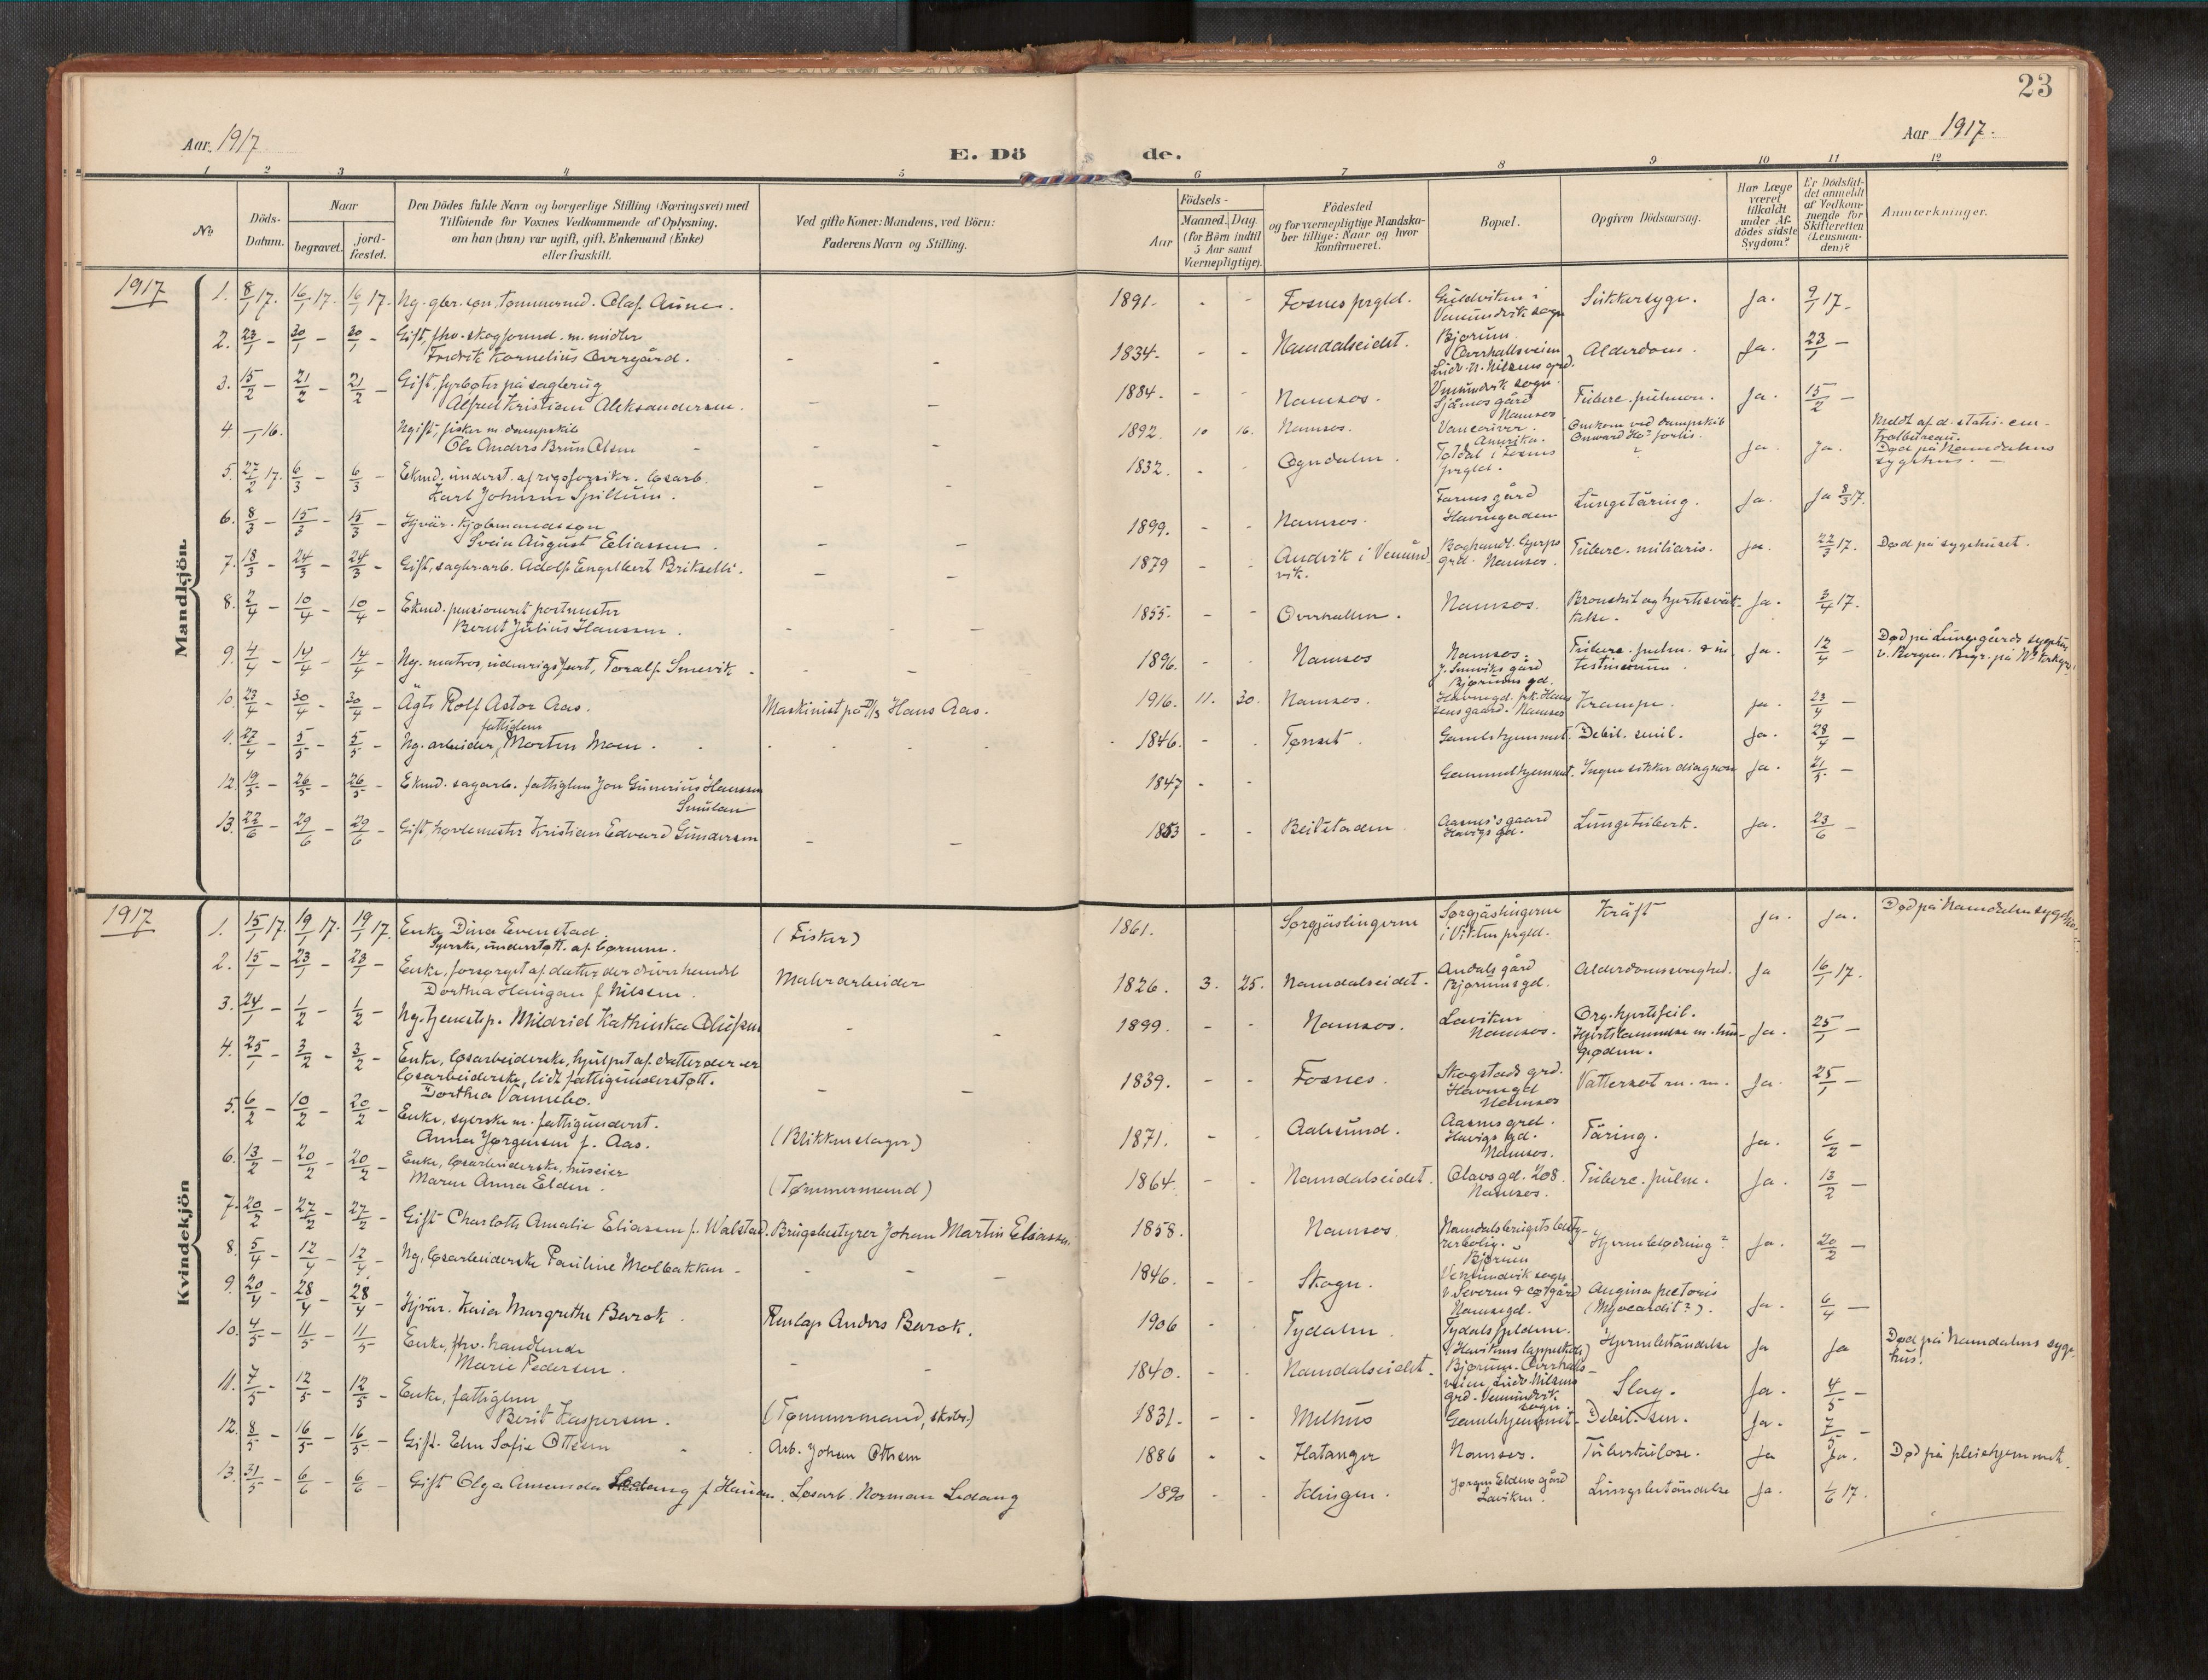 23
Aar. 1917
Aar 1917.
E. Dö de.
1 2 3 4 5 6 7 8 9 10 11 12
No
Döds-Datum.
Naar
begravet.
jord-fæstet.
Den Dödes fulde Navn og borgerlige Stilling (Næringsvei) med
Tilföiende for Voxnes Vedkommende af Oplysning,
om han (hun) var ugift, gift, Enkemand (Enke)
eller fraskilt.
Ved gifte Koner: Mandens, ved Börn:
Faderens Navn og Stilling.
Födsels-
Aar
Maaned. Dag.
(for Börn indtil
5 Aar samt
Værnepligtige).
Födested
og for værnepligtige Mandska-
ber tillige: Naar og hvor
konfirmeret.
Bopæl.
Opgiven Dödsaarsag.
Har Læge
været
tilkaldt
under Af-
dödes sidste
Sygdom?
Er Dödsfal-
det anmeldt
af Vedkom-
mende for
Skifteretten
(Lensman-
den)?
Anmærkninger.
Mandkjön.
1917
1. 8/1 17. 16/1 17. 16/1 17. Ug. gbr. søn, tømmermd. Olaf Aune. 1891. - - Fosnes prgld. Guldviken i Vemundvik sogn Sukkersyge. Ja. 9/1 17.
2. 23/1 - 30/1 - 30/1 - Gift, fhv. skogforvd. m. midler
Fredrik Kornelius Overgård. - - 1834. - - Namdalseidet. Bjørum Overhallsveien Ludv. N. Nilsens grd. Alderdom. Ja. 23/1 -
3. 15/2 - 21/2 - 21/2 - Gift, fyrbøter på sagbrug
Alfred Kristian Aleksandersen. - - 1884. - - Namsos. Vemundvik sogn. Sjåenes gård Namsos Tuberc. pulmon. Ja. 15/2 -
4. -/1 16. Ugift, fisker m. dampskib
Ole Anders Brun Olsen - - 1892. 10 16. Namsos. Vancouver. Amerika. Omkom ved dampskib Onward Ho's forlis. Meldt af d. statis. cen-
tralbureau.
5. 27/2 17. 6/3 - 6/3 - Ekmd. underst. af rigsforsikr. løsarb.
Karl Johann Spillum. - - 1832. - - Ogndalen. Toldal i Fosnes prgld. ? Ja. Ja. Død på Namdalens
sygehus. -
6. 8/3 - 15/3 - 15/3 - Hjvär. kjøbmandssøn
Svein August Eliassen. - - 1899. - - Namsos. Farms gård Havnegaden Lungetäring. Ja. Ja 8/3 17.
7. 18/3 - 24/3 - 24/3 - Gift, sagbr.arb. Adolf Engelbert Brikselli. - - 1879 - - Andvik i Vemundvik. Boghandl. Gjerps grd. Namsos. Tuberc. miliaris. Ja. 22/3 17. Død på sygehuset.
8. 2/4 - 10/4 - 10/4 - Ekmd. pensioneret postmester
Bernt Julius Hansen. - - - 1855. - - Overhallen. Namsos. Bronchit og hjertesvækkelse. Ja. 3/4 17.
9. 4/4 - 14/4 - 14/4 - Ug. matros, udenrigsfart, Toralf Smevik. - 1896. - - Namsos Namsos. J. Smeviks gård Bjørums gd. Tuberc. pulm. & intestinorum. Ja. 12/4 - Død på Lungegårds sygehus
v. Bergen.
10. 23/4 - 30/4 - 30/4 - Ägte Rolf Astor Aas. Maskinist på D/S Hans Aas. 1916. 11. 30. Namsos. Havnegd. frk. Hanssens gaard. Namsos Krampe. ja. 23/4 -
11. 27/4 - 5/5 - 5/5 - Ug. arbeider, fattiglem Morten Moen. 1846. - - Tønset. Gamlehjemmet. Debil. senil. Ja. 28/4 -
12. 19/5 - 26/5 - 26/5 - Ekmd. sagarb. fattiglem Jon Gunerius Hansen
Smulan 1847 - - Gammelhjemmet. Ingen sikker diagnose Ja. 21/5 -
13. 22/6 - 29/6 - 29/6 - Gift, høvlemester Kristian Edvard Gundersen - - 1853 - - Beitstaden Aasnes's gaard Havigs gd. Lungetuberk. Ja. 23/6 -
Kvindekjön
1917
1. 15/1 17. 19/1 17. 19/1 17. Enke Dina Evenstad.
Syerske, understøtt. af børnene. (Fisker) 1861. Sørgjäslingerne Sørgjäslingerne i Vikten prgld. Kräft Ja. Ja. Død på Namdalens sygehus.
2. 15/1 - 23/1 - 23/1 - Enke, forsørget af datter der driver handel
Dorthea Haugan f. Nilsen. Malerarbeider 1826. 3. 25. Namdalseidet. Andals gård Bjørumsgd. Alderdomssvaghed. Ja 16/1 17.
3. 24/1 - 1/2 - 1/2 - Ug. tjenestep. Mildrid Kathinka Olufsen - - 1899. - - Namsos. Laviken Namsos. Org. hjertefeil. Hjertelammelse Ja. 25/1 -
4. 25/1 - 3/2 - 3/2 - Enke, løsarbeiderske, hjulpet af datter der er
løsarbeiderske, lidt fattigunderstøtt.
Dorthea Vannebo. - - 1839. - - Fosnes. Skogstads grd. Havnegd Namsos Vattersot m. m. Ja. 25/1 -
5. 6/2 - 10/2 - 20/2 - Enke, syerske m. fattigunderst.
Anna Jørgensen f. Aas. (Blikkenslager) 1871. - - Aalesund. Aasnes grd. Havigs gd. Namsos. Täring. Ja. 6/2 -
6. 13/2 - 20/2 - 20/2 - Enke, løsarbeiderske, huseier
Maren Anna Elden. (Tømmermand) 1864. - - Namdalseidet. Olavs gd. 208. Namsos. Tuberc. pulm. Ja. 13/2 -
7. 20/2 - 27/2 - 27/2 - Gift Charlotte Amalie Eliassen f. Walstad. Brugsbestyrer Johan Martin Eliassen. 1858. Namsos. Namdalsbrugets bestyrerbolig. Bjørum Hjerneblødning? Ja. 20/2 -
8. 5/4 - 12/4 - 12/4 - Ug. løsarbeiderske Pauline Molbakken - - - 1846. - - Skogn. Vemundvik sogn Angina pectoris (Myocardit?). Ja. 6/4 -
9. 20/4 - 28/4 - 28/4 - Hjvär. Kaia Margrethe Barok. Renlap Anders Barok. 1906 - Tydalen. Tydalsfjeldene. Hjernebetändelse Ja Ja Død på Namdalens syge-
hus.
10. 4/5 - 11/5 - 11/5 Enke, fhv. handlende
Marie Pedersen. - - 1840. - - Namdalseidet. Bjørum. Overhallsveien Ludv. Nilsens grd. Vemundvik sogn. Slag. Ja. 4/5 -
11. 7/5 - 12/5 - 12/5 - Enke, fattiglem
Berit Kaspersen. (Tømmermand, skotr.) 1831. - - Melhus Gamlehjemmet. Debil. sen. Ja. 7/5 -
12. 8/5 - 16/5 - 16/5 - Gift. Elen Sofie Ottesen Arb. Johan Ottesen 1886 - - Flatanger Namsos. Tuberkulose. Ja Ja. Død på pleiehjemmet.
13. 31/5 - 6/6 - 6/6 - Gift Olga Amanda Ledang f. Hansen. Løsarb. Norman Ledang 1890 - - Klingen. Jørgen Eldens gård Laviken. Lungebetändelse Ja. 1/6 17.